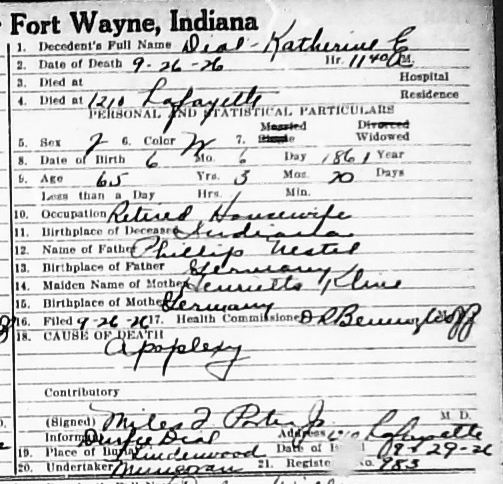 Fort Wayne, Indiana
1. Decedent's Full Name Dial - Katherine E
2. Date of Death 9-26-26 Hr. 1140 A M.
3. Died at Hospital
4. Died at 1210 Lafayette Residence
PERSONAL AND STATISTICAL PARTICULARS
Married Divorced
5. Sex F 6. Color W 7. Single Widowed
8. Date of Birth 6 Mo. 6 Day 1861 Year
9. Age 65 Yrs. 3 Mos. 20 Days
Less than a Day Hrs. Min.
10. Occupation Retired Housewife
11. Birthplace of Deceased Indiana
12. Name of Father Phillip Nestel
13. Birthplace of Father Germany
14. Maiden Name of Mother Henrietta Kline
15. Birthplace of Mother Germany
16. Filed 9-26-26 17. Health Commissioner
18. CAUSE OF DEATH
Apoplexy
Contributory
(Signed) Miles F Porter Jr M. D.
Inform Dial Address 1210 Lafayette
19. Place of Burial Lindenwood Date of 9-29-26
20. Undertaker 21. Registe No. 983